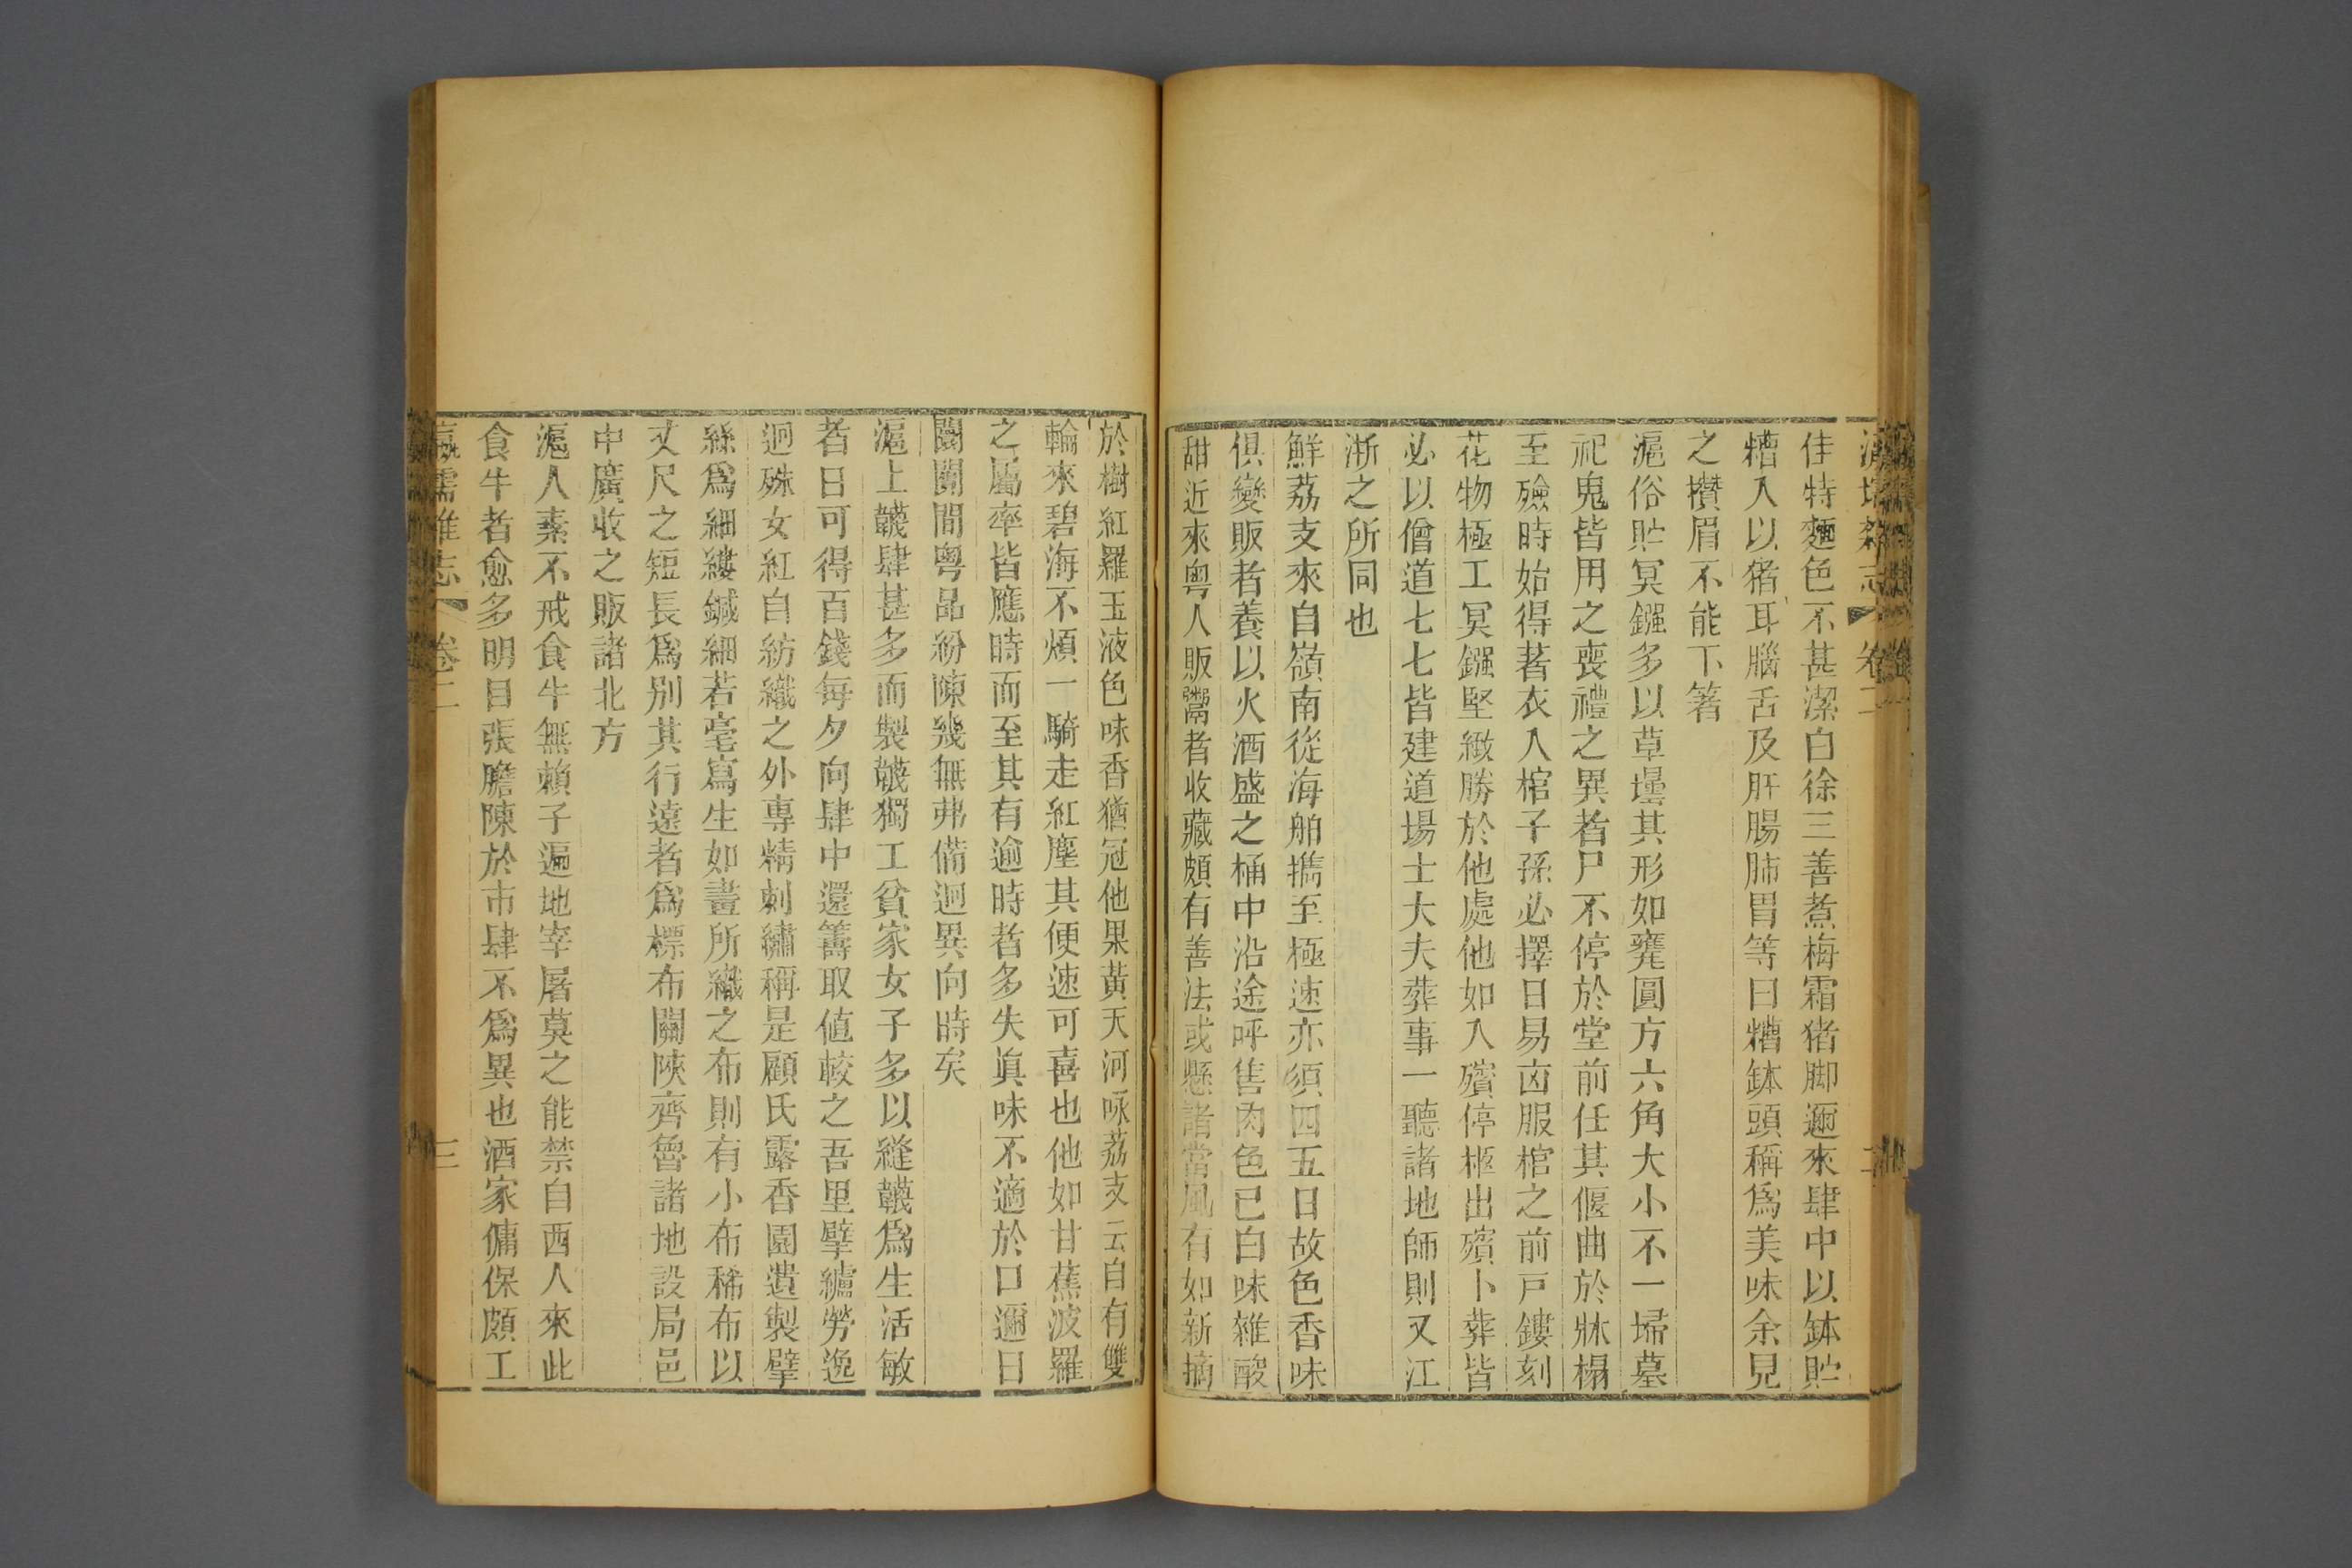 瀛壖雜志 卷二 二
佳特麵色不甚潔白徐三善煮梅霜猪脚邇來肆中以缽貯
糟入以猪耳腦舌及肝腸肺胃等曰糟缽頭稱爲美味余見
之攢眉不能下箸
滬俗貯冥鏹多以草壜其形如甕圓方六角大小不一埽墓
祀鬼皆用之喪禮之異者尸不停於堂前任其偃曲於牀榻
至殮時始得著衣入棺子孫必擇日易凶服棺之前戸鏤刻
花物極工冥鏹堅緻勝於他處他如入殯停柩出殯卜葬皆
必以僧道七七皆建道場士大夫葬事一聽諸地師則又江
浙之所同也
鮮荔支來自嶺南從海舶擕至極速亦須四五日故色香味
俱變販者養以火酒盛之桶中沿途呼售肉色已白味雜酸
甜近來粤人販鬻者收藏頗有善法或懸諸當風有如新摘
於樹紅羅玉液色味香猶冠他果黃天河咏荔支云自有雙
輪來碧海不煩一騎走紅塵其便速可喜也他如甘蕉波羅
之屬率皆應時而至其有逾時者多失眞味不適於口邇日
闤闠間粤品紛陳幾無弗備迥異向時矣
滬上韈肆甚多而製韈獨工貧家女子多以縫韈爲生活敏
者日可得百錢每夕向肆中還籌取值較之吾里擘纑勞逸
迥殊女紅自紡織之外專精刺繡稱是顧氏露香園遺製擘
絲爲細縷鍼細若毫寫生如畫所織之布則有小布稀布以
丈尺之短長爲别其行遠者爲標布關陝齊魯諸地設局邑
中廣收之販諸北方
滬人素不戒食牛無賴子遍地宰屠莫之能禁自西人來此
食牛者愈多明目張膽陳於市肆不爲異也酒家傭保頗工
瀛壖雜志 卷二 三